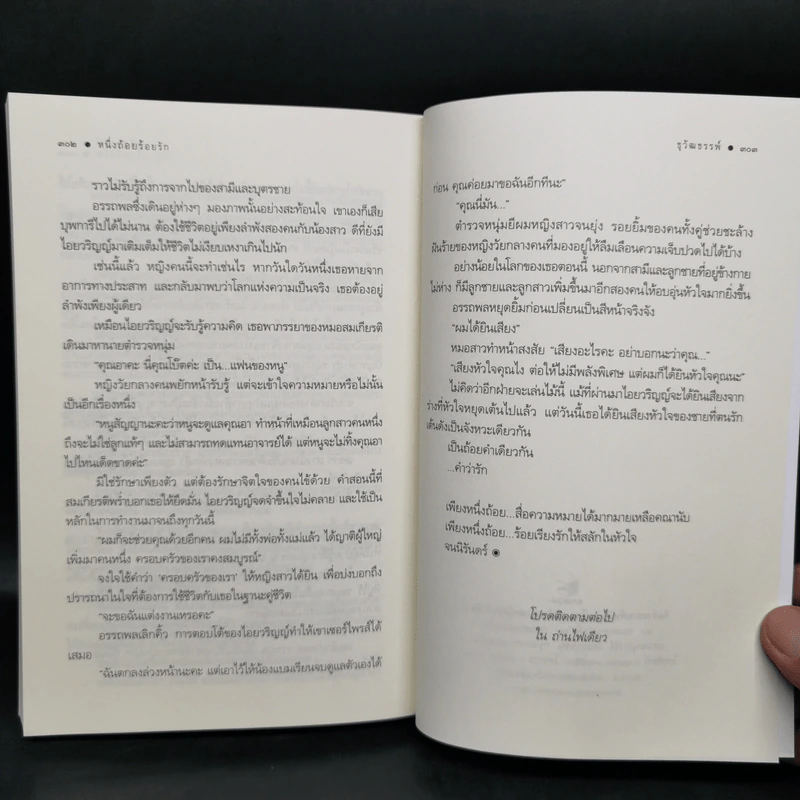 ๓๐๒ ● หนึ่งถ้อยร้อยรัก
ราวไม่รับรู้ถึงการจากไปของสามีและบุตรชาย
อรรถพลซึ่งเดินอยู่ห่างๆ มองภาพนั้นอย่างสะท้อนใจ เขาเองก็เสีย
บุพการีไปได้ไม่นาน ต้องใช้ชีวิตอยู่เพียงลำพังสองคนกับน้องสาว ดีที่ยังมี
ไอยวริญญ์มาเติมเต็มให้ชีวิตไม่เงียบเหงาเกินไปนัก
เช่นนี้แล้ว หญิงคนนี้จะทำเช่นไร หากวันใดวันหนึ่งเธอหายจาก
อาการทางประสาท และกลับมาพบว่าโลกแห่งความเป็นจริง เธอต้องอยู่
ลำพังเพียงผู้เดียว
เหมือนไอยวริญญ์จะรับรู้ความคิด เธอพาภรรยาของหมอสมเกียรติ
เดินมาหานายตำรวจหนุ่ม
“คุณอาคะ นี่คุณโบ๊ตค่ะ เป็น...แฟนของหนู”
หญิงวัยกลางคนพยักหน้ารับรู้ แต่จะเข้าใจความหมายหรือไม่นั้น
เป็นอีกเรื่องหนึ่ง
“หนูสัญญานะคะว่าหนูจะดูแลคุณอา ทำหน้าที่เหมือนลูกสาวคนหนึ่ง
ถึงจะไม่ใช่ลูกแท้ๆ และไม่สามารถทดแทนอาจารย์ได้ แต่หนูจะไม่ทิ้งคุณอา
ไปไหนเด็ดขาดค่ะ”
มิใช่รักษาเพียงตัว แต่ต้องรักษาจิตใจของคนไข้ด้วย คำสอนนี้ที่
สมเกียรติพร่ำบอกเธอให้ยึดมั่น ไอยวริญญ์จดจำขึ้นใจไม่คลาย และใช้เป็น
หลักในการทำงานมาจนถึงทุกวันนี้
“ผมก็จะช่วยคุณด้วยอีกคน ผมไม่มีทั้งพ่อทั้งแม่แล้ว ได้ญาติผู้ใหญ่
เพิ่มมาคนหนึ่ง ครอบครัวของเราคงสมบูรณ์”
จงใจใช้คำว่า ‘ครอบครัวของเรา’ ให้หญิงสาวได้ยิน เพื่อบ่งบอกถึง
ปรารถนาในใจที่ต้องการใช้ชีวิตกับเธอในฐานะคู่ชีวิต
“จะขอฉันแต่งงานเหรอคะ”
อรรถพลเลิกคิ้ว การตอบโต้ของไอยวริญญ์ทำให้เขาเซอร์ไพรส์ได้
เสมอ
“ฉันตกลงล่วงหน้านะคะ แต่เอาไว้ให้น้องแบมเรียนจบดูแลตัวเองได้
ธุวัฒธรรพ์ ● ๓๐๓
ก่อน คุณค่อยมาขอฉันอีกทีนะ”
“คุณนี่มัน...”
ตำรวจหนุ่มยีผมหญิงสาวจนยุ่ง รอยยิ้มของคนทั้งคู่ช่วยชะล้าง
ฝันร้ายของหญิงวัยกลางคนที่มองอยู่ให้ลืมเลือนความเจ็บปวดไปได้บ้าง
อย่างน้อยในโลกของเธอตอนนี้ นอกจากสามีและลูกชายที่อยู่ข้างกาย
ไม่ห่าง ก็มีลูกชายและลูกสาวเพิ่มขึ้นมาอีกสองคนให้อบอุ่นหัวใจมากยิ่งขึ้น
อรรถพลหยุดยิ้มก่อนเปลี่ยนเป็นสีหน้าจริงจัง
“ผมได้ยินเสียง”
หมอสาวทำหน้าสงสัย “เสียงอะไรคะ อย่าบอกนะว่าคุณ...”
“เสียงหัวใจคุณไง ต่อให้ไม่มีพลังพิเศษ แต่ผมก็ได้ยินหัวใจคุณนะ”
ไม่คิดว่าอีกฝ่ายจะเล่นไม้นี้ แม้ที่ผ่านมาไอยวริญญ์จะได้ยินเสียงจาก
ร่างที่หัวใจหยุดเต้นไปแล้ว แต่วันนี้เธอได้ยินเสียงหัวใจของชายที่ตนรัก
เต้นดังเป็นจังหวะเดียวกัน
เป็นถ้อยคำเดียวกัน
...คำว่ารัก
เพียงหนึ่งถ้อย...สื่อความหมายได้มากมายเหลือคณานับ
เพียงหนึ่งถ้อย...ร้อยเรียงรักให้สลักในหัวใจ
จนนิรันดร์ ◉
โปรดติดตามต่อไป
ใน ถ่านไฟเดียว